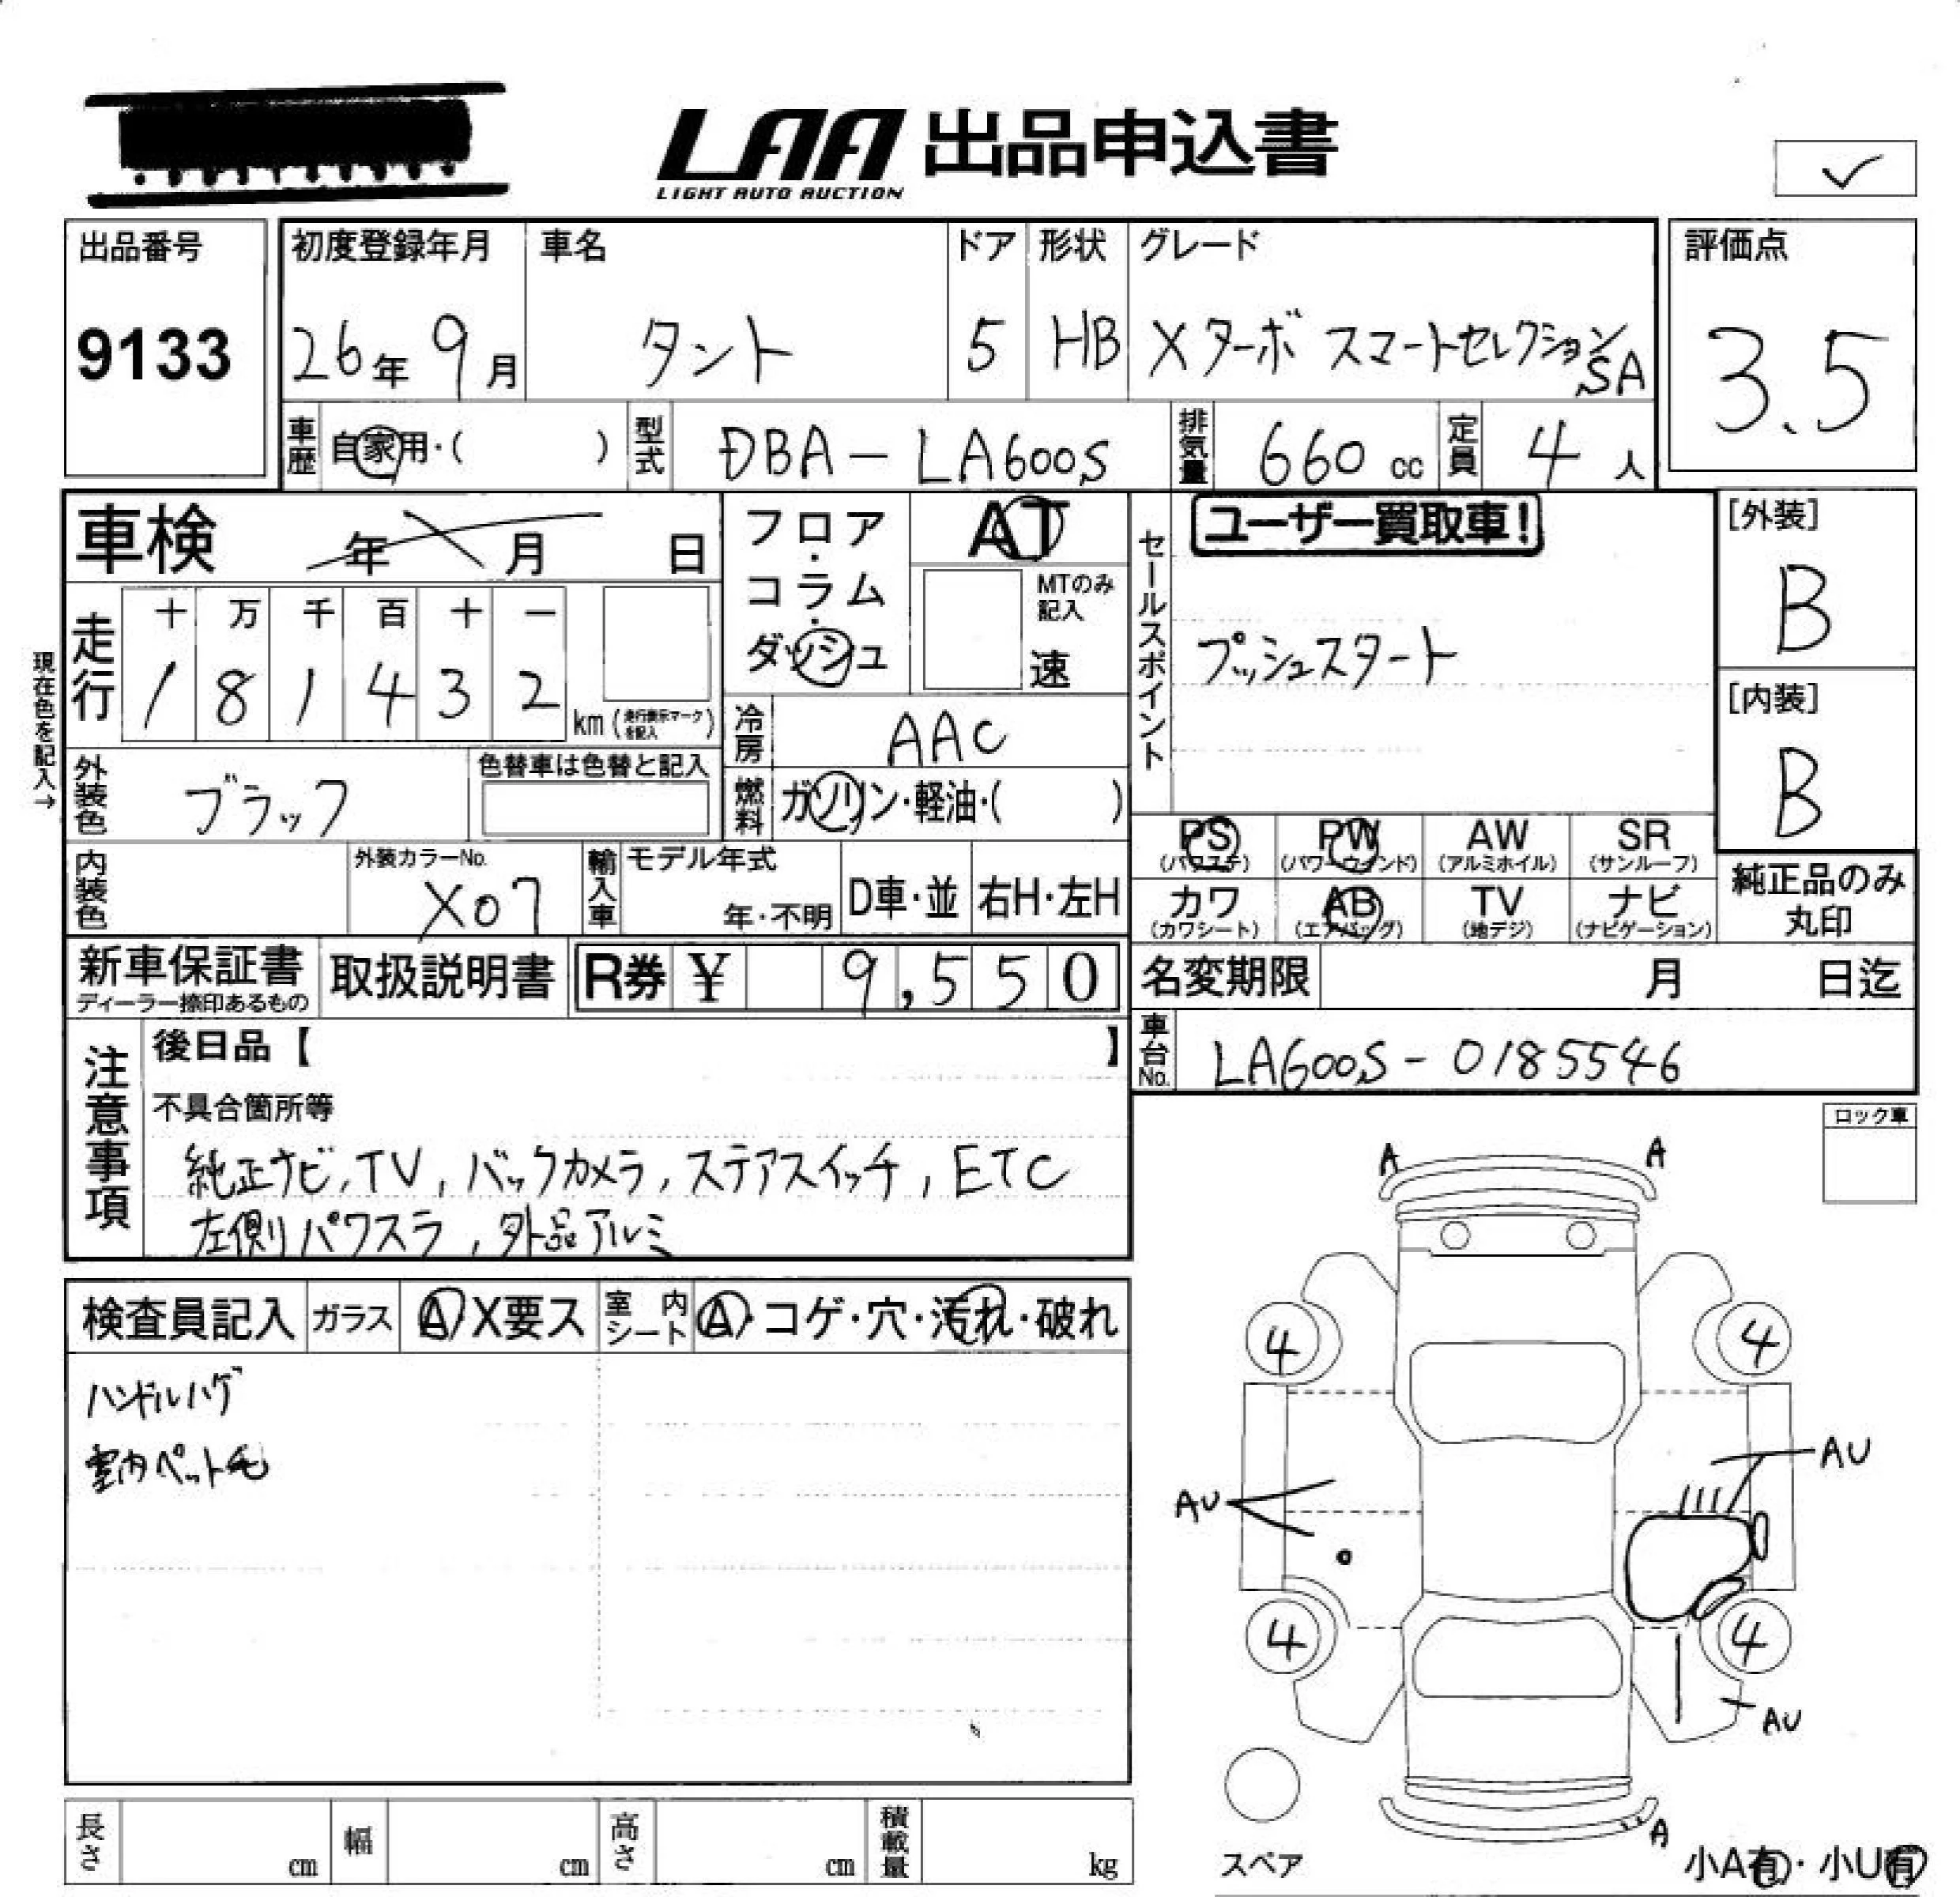 LAA 出品申込書
LIGHT AUTO AUCTION
✓
出品番号
9133
初度登録年月
26年9月
車名
タント
ドア
5
形状
HB
グレード
Xターボ スマートセレクション
SA
評価点
3.5
車歴
自家用・( )
型式
DBA-LA600S
排気量
660 cc
定員
4 人
車検 年 月 日
フロア・コラム・ダッシュ
AT
MTのみ記入
速
セールスポイント
ユーザー買取車!
プッシュスタート
[外装]
B
[内装]
B
現在色を記入→
走行
十 万 千 百 十 一
1 8 1 4 3 2
km (走行表示マークを記入)
冷房
AAC
外装色
ブラック
色替車は色替と記入
燃料
ガソリン・軽油・( )
PS (パワステ)
PW (パワーウインド)
AW (アルミホイル)
SR (サンルーフ)
カワ (カワシート)
AB (エアバッグ)
TV (地デジ)
ナビ (ナビゲーション)
純正品のみ丸印
内装色
外装カラーNo.
X07
輸入車
モデル年式
年・不明
D車・並
右H・左H
新車保証書
ディーラー捺印あるもの
取扱説明書
R券 ¥ 9,550
名変期限 月 日迄
車台No.
LA600S-0185546
注意事項
後日品【 】
不具合箇所等
純正ナビ,TV,バックカメラ,ステアスイッチ,ETC
左側パワスラ,外品アルミ
ロック車
検査員記入
ガラス
A X要ス
室内シート
A・コゲ・穴・汚れ・破れ
ハンドルハゲ
室内ペット毛
A A
4 4
AU
AU
4 4
AU
A
スペア
小A有・小U有
長さ cm
幅 cm
高さ cm
積載量 kg